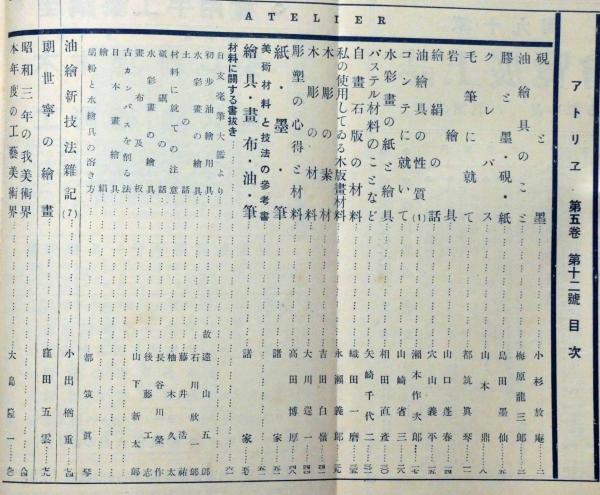 ATELIER
アトリヱ 第五卷 第十二號 目次
硯と墨 小杉放庵
油繪具のこと 梅原龍三郎
膠と墨・硯・紙 島田墨仙
クレパス 山本鼎
毛筆に就て 都筑眞琴
岩繪の具 山口蓬春
繪絹の話 穴山義平
油繪具の性質(1) 瀬木作次郎
コンテに就いて 山崎省三
水彩畫の紙と繪具 相田直彥
パステル材料のことなど 矢崎千代二
自畫石版の材料 織田一磨
私の使用してゐる木版畫材料 永瀬義郎
木彫の素材 吉田白嶺
木彫の材料 大川逞一
彫塑の心得と材料 高田博厚
紙・墨・筆 諸家
美術材料と技法の參考書
繪具・畫布・油・筆 諸家
材料に關する書拔き
白支毫筆大鑑より
初步油繪用具 故遠山五郎
水彩畫の材料 石川欣一郎
土の話 藤井浩祐
材料に就ての注意 柚木久太
砥礪の話 長谷川榮作
水彩畫及 後藤工志
畫布及繪板
古カンバスを削る法 山下新太郎
日本畫繪具
繪絹
胡粉と水繪具の溶き方 都筑眞琴
油繪新技法雜記(7) 小出楢重
朗世寧の繪畫 窪田五雲
昭和三年の我美術界
本年度の工藝美術界 大島隆一